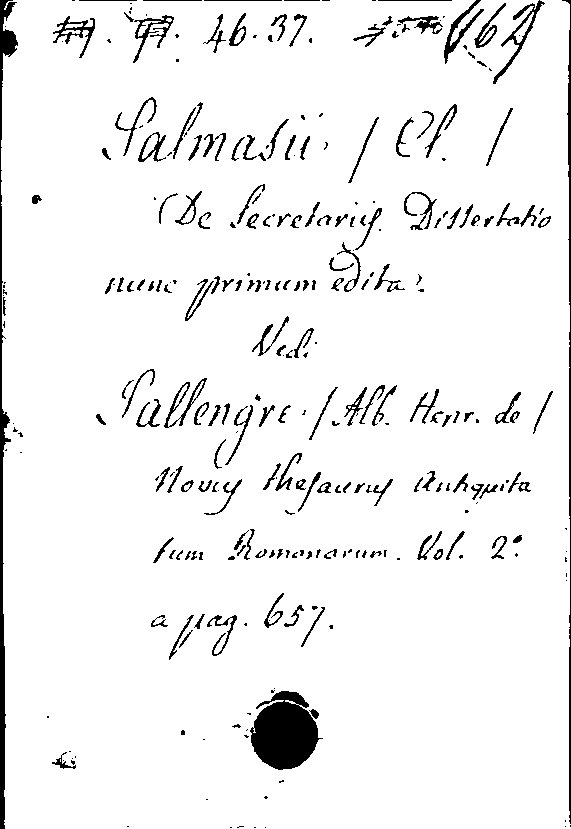 46.37. 162
Salmasii. / Cl. /
De Secretariis. Dissertatio
nunc primum edita.
Vedi
Sallengre. / Alb. Henr. de /
Novus thesaurus Antiquita
tum Romanarum. Vol. 2.°
a pag. 657.